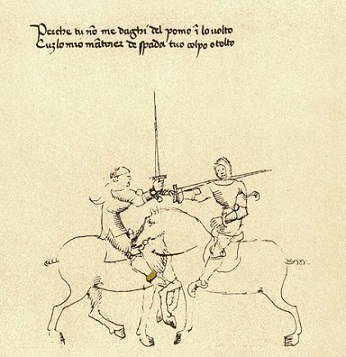 Perche tu nõ me daghi del pomo ĩ lo volto
Cuz lo mio mãtener de spada tuo colpo o tolto